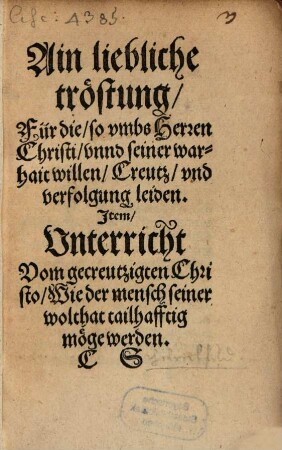 4385.
Ain liebliche
tröstung/
Für die/so vmbs Herren
Christi/vnnd seiner war-
hait willen/Creutz/vnd
verfolgung leiden.
Item/
Vnterricht
Vom gecreutzigten Chri
sto/Wie der mensch seiner
wolthat tailhafftig
möge werden.
C S